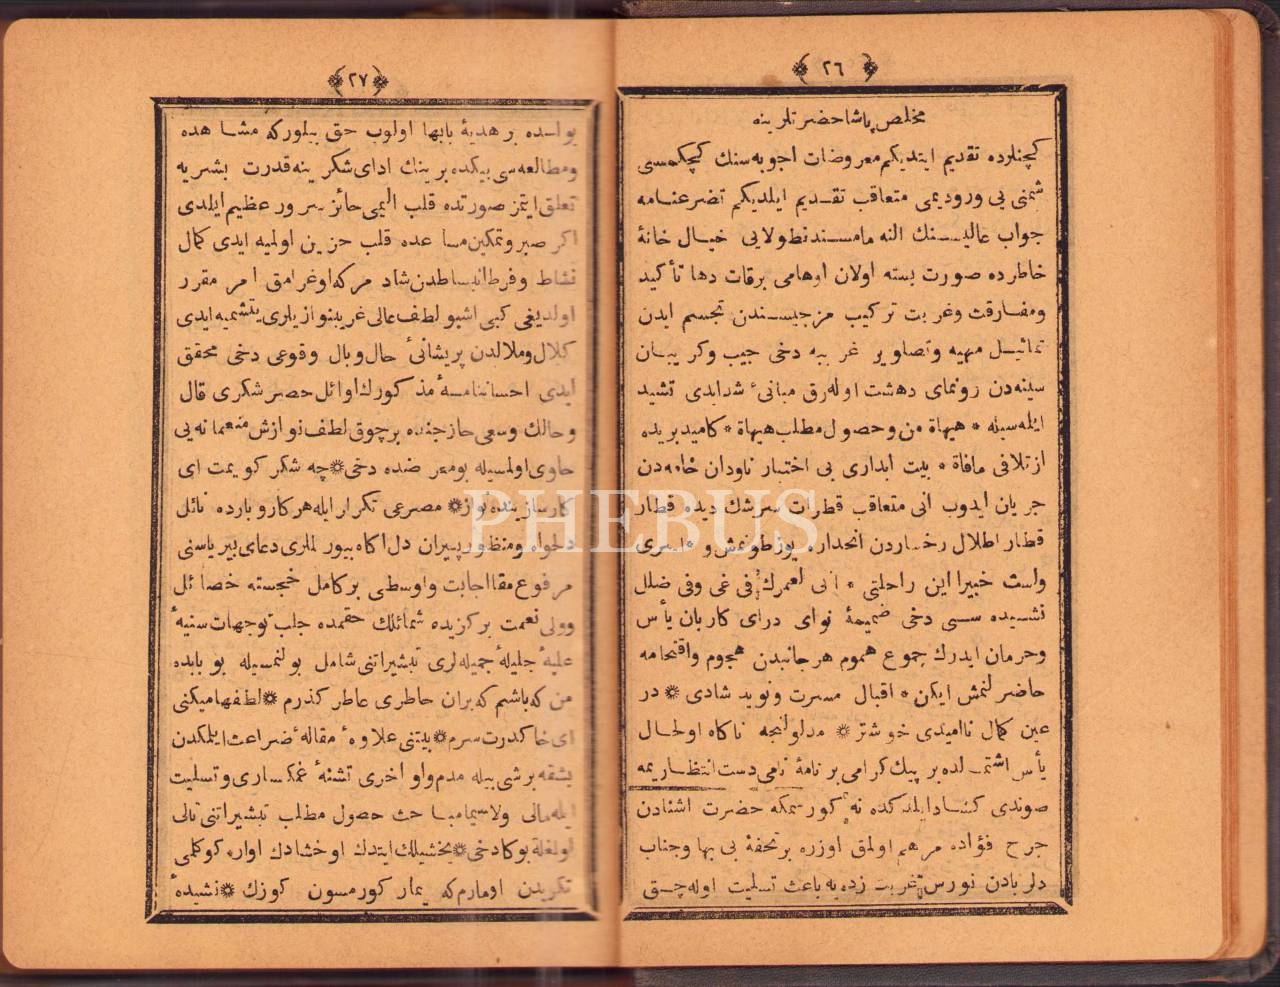 ٢٦
مخلص پاشا حضرتلرينه
كچنلرده تقديم ايتديكم معروضات اجوبه سنك كچيكمسى
شمنى بى ورودىمى متعاقب تقديم ايلديكم تضرعنامه
جواب عاليسنك النه مامسندنطولايى خيال خانهٔ
خاطرده صورت بسته اولان اوهامى برقات دها تأكيد
ومفارقت وغربت تركيب مزجيسندن تجسم ايدن
تماثيل مهيه وتصاوير غريبه دخى جيب وكريبان
سينه دن رونماى دهشت اوله رق مبانئ شدايدى تشييد
ايله سيله * هيهاة من وحصول مطلب هيهاة * كاميد بريده
از تلافى مافاة * بيت ابدارى بى اختيار ناودان خامه دن
جريان ايدوب انى متعاقب قطرات سرشك ديده قطار
قطار اطلال رخساردن انحداره يوزطوتمش و
واست خبيرا اين راحلتى * انى لعمرك فى غى وفى ضلل
نشيده سى دخى ضميمهٔ نواى دراى كاربان يأس
وحرمان ايدرك جموع هموم هر جانبدن هجوم واقتحامه
حاضرلنمش ايكن * اقبال مسرت ونويد شادى * در
عين كمال نااميدى خوشتر * مدلولنجه ناكاه اولحال
يأس اشتمالده بر پيك كرامى بر نامهٔ نامى دست انتظاريمه
صوندى كشاد ايلدكده نه كورسمكه حضرت اشتادن
جرح فؤاده مرهم اولمق اوزره بر تحفهٔ بى بها وجناب
دلربادن نورس غربت زده يه باعث تسليت اوله جق
٢٧
بوالده بر هديهٔ بابها اولوب حق بيلوركه مشاهده
ومطالعه سى بيكده برينك اداى شكرينه قدرت بشريه
تعلق ايتمز صورتده قلب اليمى حائز سرور عظيم ايلدى
اكر صبر وتمكين مساعده قلب حزين اولميه ايدى كمال
نشاط وفرط انبساطدن شاد مركه اوغرامق امر مقرر
اولديغى كبى اشبو لطف عالى غريبنوازيلرى يتشميه ايدى
كلال وملالدن پريشانئ حال وبال وقوعى دخى محقق
ايدى احساننامهٔ مذكورك اوائل حصر شكرى قال
وحالك وسعى خارجنده برچوق لطف نوازش منعمانه يى
حاوى اولمسيله بومعرضده دخى * چه شكر كويمت اى
كارساز بنده نواز * مصرعى تكرار ايله هركار وبارده نائل
دلخواه ومنظور پيران دل آكاه بيورلملرى دعاى بيرياسنى
مرفوع مقااجابت واوسطى بركامل خجسته خصائل
وولى نعمت بركزيده شمائلك حقمده جلب توجهات سنيهٔ
عليهٔ جليلهٔ جميله لرى تبشيراتنى شامل بولنمسيله بوبابده
من كه باشم كه بران خاطرى عاطر كذرم * لطفها ميكنى
اى خاك درت سرم * بيتنى علاوهٔ مقالهٔ ضراعت ايلمكدن
بشقه برشى بيله مدم واو اخرى تشنهٔ غمكسارى وتسليت
ايله مالى ولاسيما مباحث حصول مطلب تبشيراتنى تالى
اولمغله بوكا دخى * بخشيلك ايتدك اوخشادك آواره كوكلمى
تكريدن اومارم كه يمار كورمسون كوزك * نشيدهٔ
PHEBUS